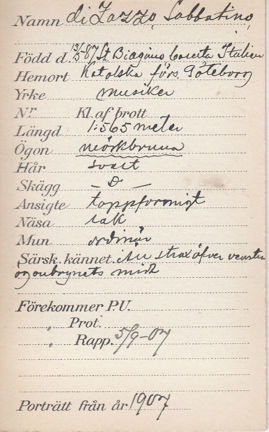 Namn di Zazzo, Sabbatino,
Född d. 13/5-87 St Biagino Caserta Italien
Hemort Katolska förs. Göteborg
Yrke musiker
Nr Kl. af brott
Längd 1.565 meter
Ögon mörkbruna
Hår svart
Skägg — 0 —
Ansigte toppformigt
Näsa rak
Mun ordinär
Särsk. kännet. Ärr strax öfver venster
ögonbrynets midt
Förekommer P.U.
" Prot.
" Rapp. 5/9-07
Porträtt från år 1907